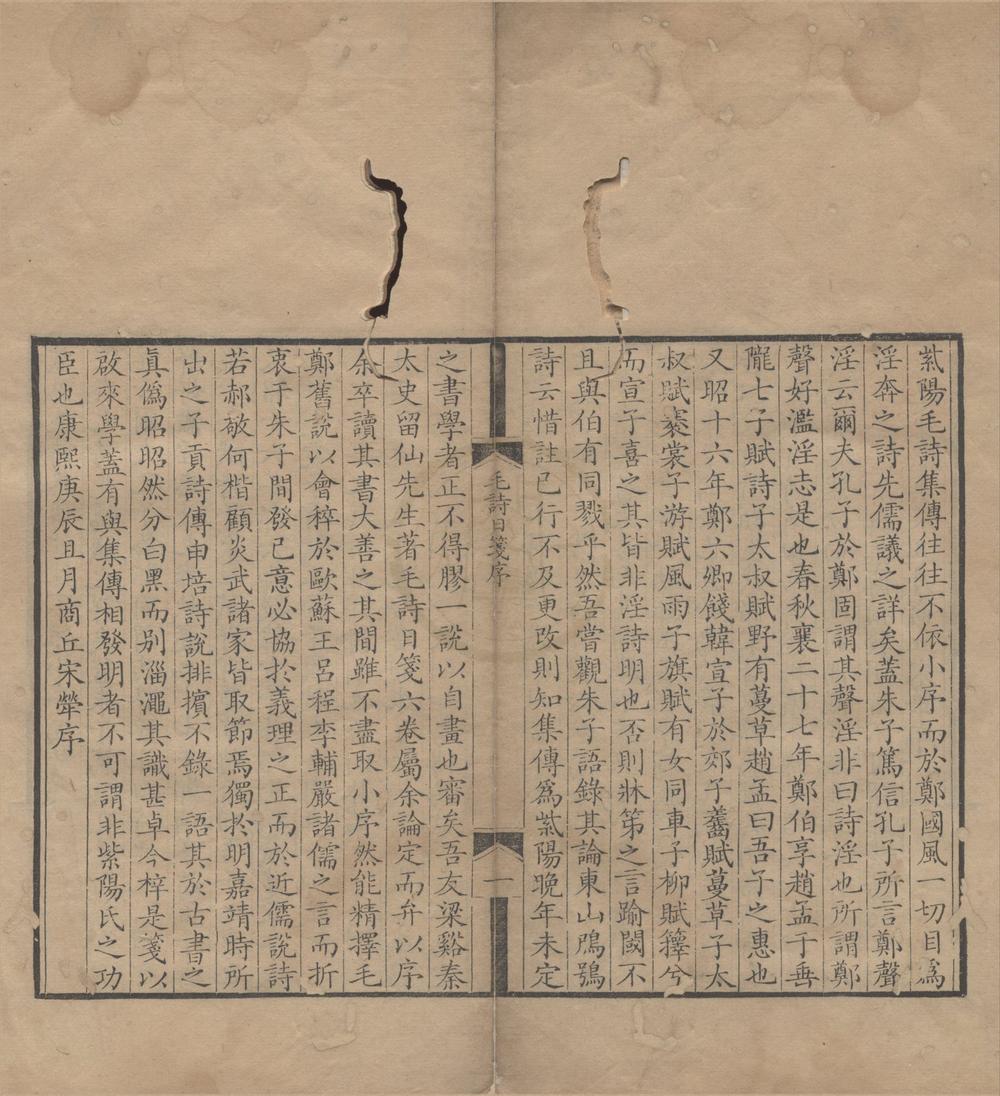 紫陽毛詩集傳往往不依小序而於鄭國風一切目爲
淫奔之詩先儒議之詳矣葢朱子篤信孔子所言鄭聲
淫云爾夫孔子於鄭固謂其聲淫非曰詩淫也所謂鄭
聲好濫淫志是也春秋襄二十七年鄭伯享趙孟于垂
隴七子賦詩子太叔賦野有蔓草趙孟曰吾子之惠也
又昭十六年鄭六卿餞韓宣子於郊子齹賦蔓草子太
叔賦褰裳子游賦風雨子旗賦有女同車子柳賦籜兮
而宣子喜之其皆非淫詩明也否則牀第之言踰閾不
且與伯有同戮乎然吾嘗觀朱子語錄其論東山鴟鴞
詩云惜註已行不及更改則知集傳爲紫陽晚年未定
毛詩日箋序
一
之書學者正不得膠一說以自畫也審矣吾友梁谿秦
太史留仙先生著毛詩日箋六卷屬余論定而弁以序
余卒讀其書大善之其間雖不盡取小序然能精擇毛
鄭舊說以會稡於歐蘇王呂程李輔嚴諸儒之言而折
衷于朱子間發己意必協於義理之正而於近儒說詩
若郝敬何楷顧炎武諸家皆取節焉獨於明嘉靖時所
出之子貢詩傳申培詩說排擯不錄一語其於古書之
眞僞昭昭然分白黑而别淄澠其識甚卓今梓是箋以
啟來學葢有與集傳相發明者不可謂非紫陽氏之功
臣也康熙庚辰且月商丘宋犖序